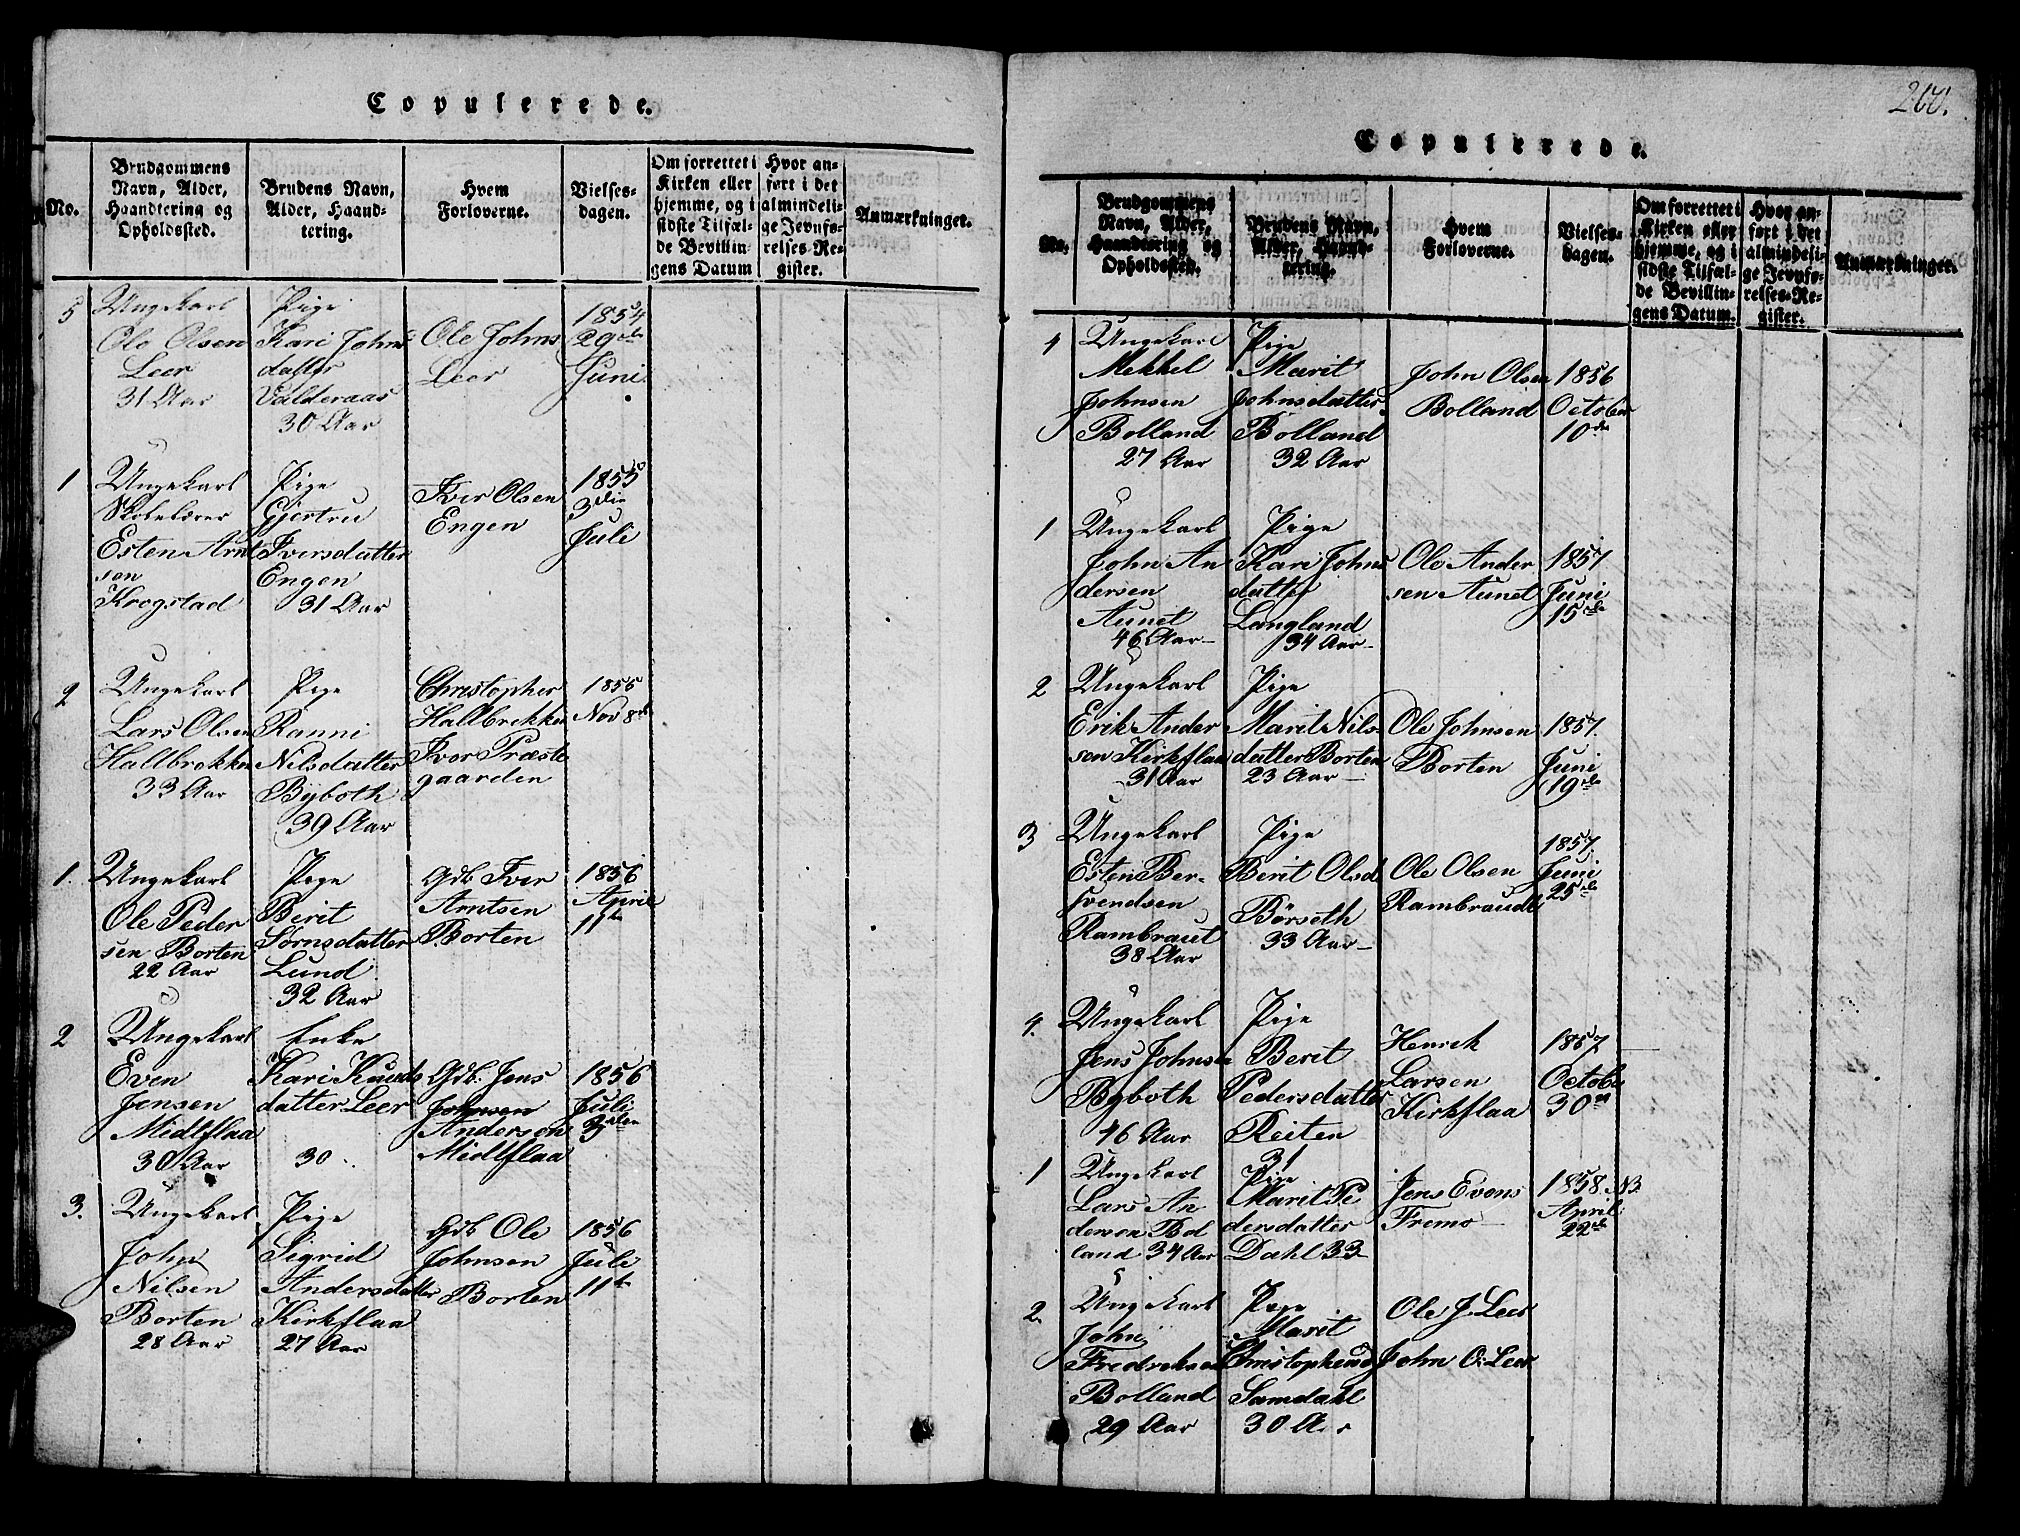 Copulerede.
No.
Brudgommens
Navn, Alder,
Haandtering og
Opholdssted.
Brudens Navn,
Alder, Haand-
tering.
Hvem
Forloverne.
Vielses-
dagen.
Om forrettet i
Kirken eller
hjemme, og i
sidste Tilfæl-
de Bevillin-
gens Datum
Hvor an-
ført i det
almindeli-
ge Jevnfø-
relses-Re-
gister.
Anmærkninger.
5
Ungekarl
Ole Olsen
Leer
31 Aar
Pige
Kari Johns
datter
Valderaas
30 Aar
Ole Johns
Leer
1854
29de
Juni
1
Ungekarl
Skolelærer
Esten Arnt
sen
Krogstad
Pige
Gjertru
Iversdatter
Engen
31 Aar
Iver Olsen
Engen
1855
3die
Juli
2
Ungekarl
Lars Olsen
Hallbrekken
33 Aar
Pige
Ranni
Nilsdatter
Byboth
39 Aar
Christopher
Hallbrekken
Iver Præste
gaarden
1855
Nov 8de
1.
Ungekarl
Ole Peder
sen Borten
22 Aar
Pige
Berit
Sørnsdatter
Lund
32 Aar
Gdb Iver
Arntsen
Borten
1856
April
11te
2
Ungekarl
Even
Jensen
Midtflaa
30 Aar
Enke
Kari Knuds
datter Leer
30
Gdb. Jens
Johnsen
Andersen
Midtflaa
1856
Juli
3den
3.
Ungekarl
John
Nilsen
Borten
28 Aar
Pige
Sigrid
Andersdatter
Kirkflaa
27 Aar
Gdb Ole
Johnsen
Borten
1856
Juli
11te
260.
Copulerede.
No.
Brudgommens
Navn, Alder,
Haandtering og
Opholdssted.
Brudens Navn,
Alder, Haand-
tering.
Hvem
Forloverne.
Vielses-
dagen.
Om forrettet i
Kirken eller
hjemme, og i
sidste Tilfæl-
de Bevillin-
gens Datum.
Hvor an-
ført i det
almindeli-
ge Jevnfø-
relses-Re-
gister.
Anmærkninger.
4
Ungekarl
Mekkel
Johnsen
Bolland
27 Aar
Pige
Marit
Johnsdatter
Bolland
32 Aar
John Olsen
Bolland
1856
October
10de
1
Ungekarl
John An
dersen
Aunet
46 Aar
Pige
Kari Johns
datter
Langland
34 Aar
Ole Ander
sen Aunet
1857
Juni
15de
2
Ungekarl
Erik Ander
sen Kirkflaa
31 Aar
Pige
Marit Nils
datter Borten
23 Aar
Ole Johnsen
Borten
1857.
Juni
19de
3
Ungekarl
Esten Ber-
svendsen
Rambraut
38 Aar
Pige
Berit Olsd
Børseth
33 Aar
Ole Olsen
Rambraudt
1857.
Juni
25de
4.
Ungekarl
Jens Johnsen
Byboth
46 Aar
Pige
Berit
Pedersdatter
Reiten
31
Henrik
Larsen
Kirkflaa
1857
October
30te
1
Ungekarl
Lars An
dersen Bol
land 34 Aar
Pige
Marit Pe
dersdatter
Dahl 33
Jens Evens
Fremo
1858
April
22de
NB.
2.
Ungekarl
John
Fredreksen
Bolland
29 Aar
Pige
Marit
Christophersd
Samdahl
30 Aar
Ole J. Leer
John O. Leer